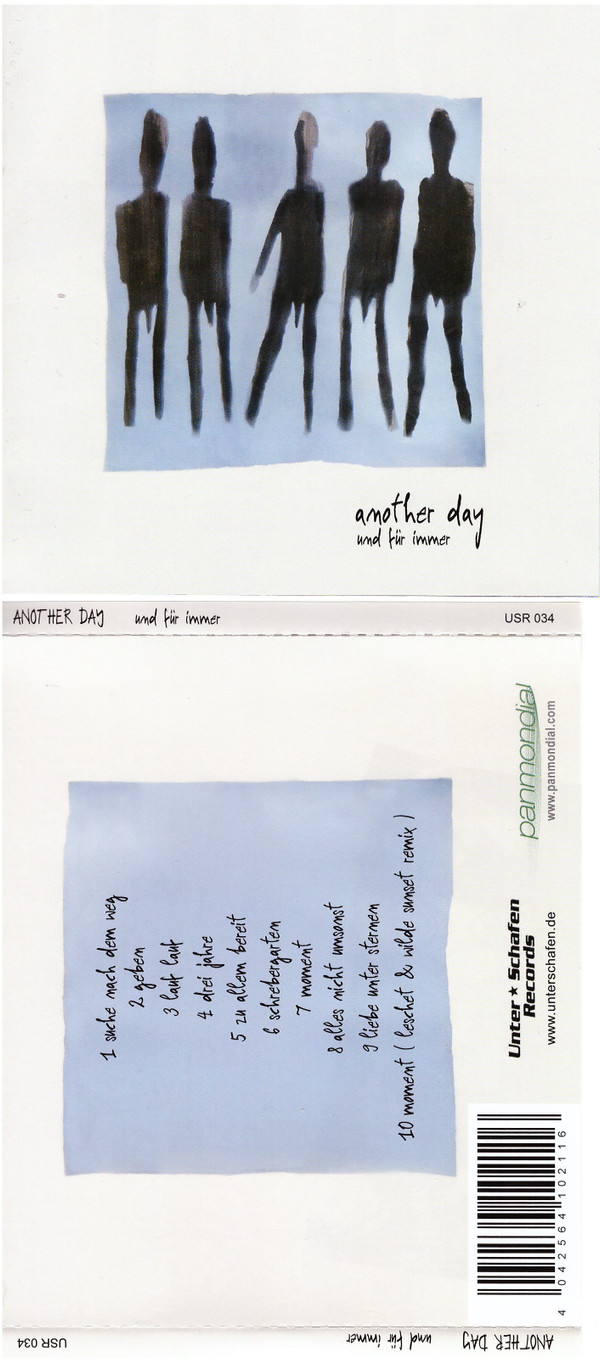 another day
und für immer
ANOTHER DAY und für immer USR 034
1 suche nach dem weg
2 geben
3 lauf lauf
4 drei jahre
5 zu allem bereit
6 schrebergarten
7 moment
8 alles nicht umsonst
9 liebe unter sternen
10 moment ( leschet & wilde sunset remix )
Unter ★ Schafen
Records
www.unterschafen.de
panmondial
www.panmondial.com
4 042564 102116
ANOTHER DAY und für immer USR 034